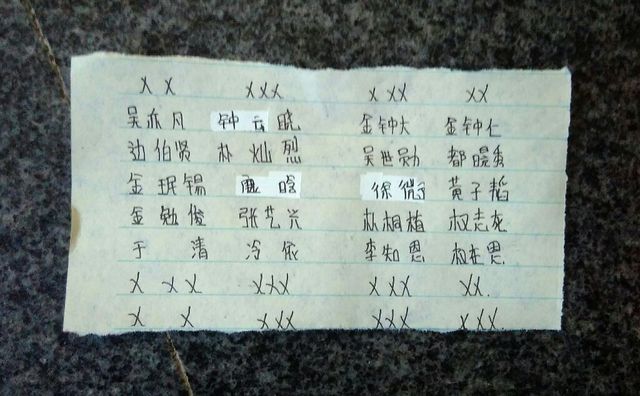 X X XXX X XX XX
吴亦凡 钟云晓 金钟大 金钟仁
边伯贤 朴灿烈 吴世勋 都暻秀
金珉锡 鹿晗 徐微雨 黄子韬
金勉俊 张艺兴 朴桐植 权志龙
于清 冷依 李知恩
X XX XXX X XX XX.
X X XXX XXX XXX.